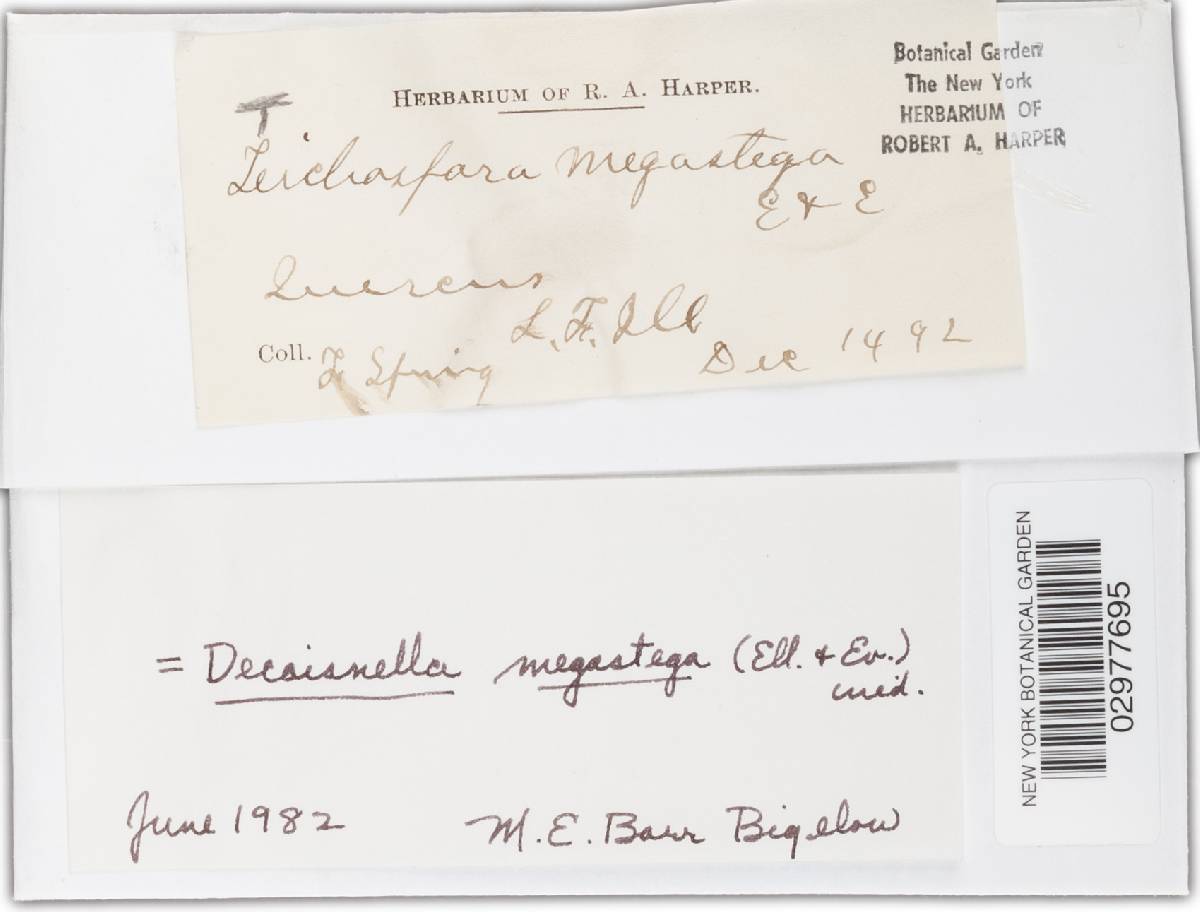 HERBARIUM OF R. A. HARPER.
Botanical Garden
The New York
HERBARIUM OF
ROBERT A. HARPER
T
Teichospora megastega
E & E
Quercus
L. F. Ill
Coll. Spring
Dec 1492
= Decaisnella megastega (Ell. & Ev.)
ined.
June 1982 M. E. Barr Bigelow
NEW YORK BOTANICAL GARDEN
02977695